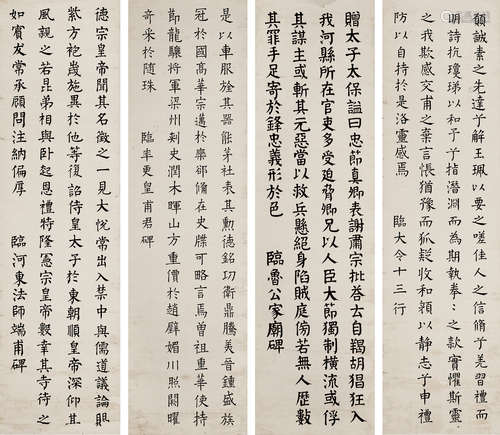 願誠素之先達兮解玉珮以嗟佳人信脩兮羌習禮而
明詩抗瓊珶以和予兮指潛淵而為期執拳之款實懼斯靈
之我欺感交甫之棄言悵猶豫而狐疑收和顏以靜志兮申禮
防以自持於是洛靈感焉　臨大令十三行
贈太子太保謚曰忠節真卿表謝肅宗批荅云自羯胡猖狂入
我河縣所在官吏多受迫脅卿兄以人臣大節獨制橫流或俘
其謀主或斬其元惡當以救兵懸絕身陷賊庭傍若無人歷數
其罪手足寄於鋒忠義形於色　臨魯公家廟碑
是以車服旌其器能茅社表其勳德銘功衛鼎騰美晉鍾盛族
冠於國高華宗邁於欒郤備在史牒可略言焉曾祖重華使持
節龍驤將軍梁州刺史潤木暉山方重價於趙璧媚川照闕曜
奇采於隨珠　臨率更皇甫君碑
德宗皇帝聞其名徵之一見大悅常出入禁中與儒道議論賜
紫方袍歲施異於他等復詔侍皇太子於東朝順皇帝深仰其
風親之若昆弟相與臥起恩禮特隆憲宗皇帝數幸其寺待之
如賓友常承顧問注納偏厚　臨河東法師端甫碑